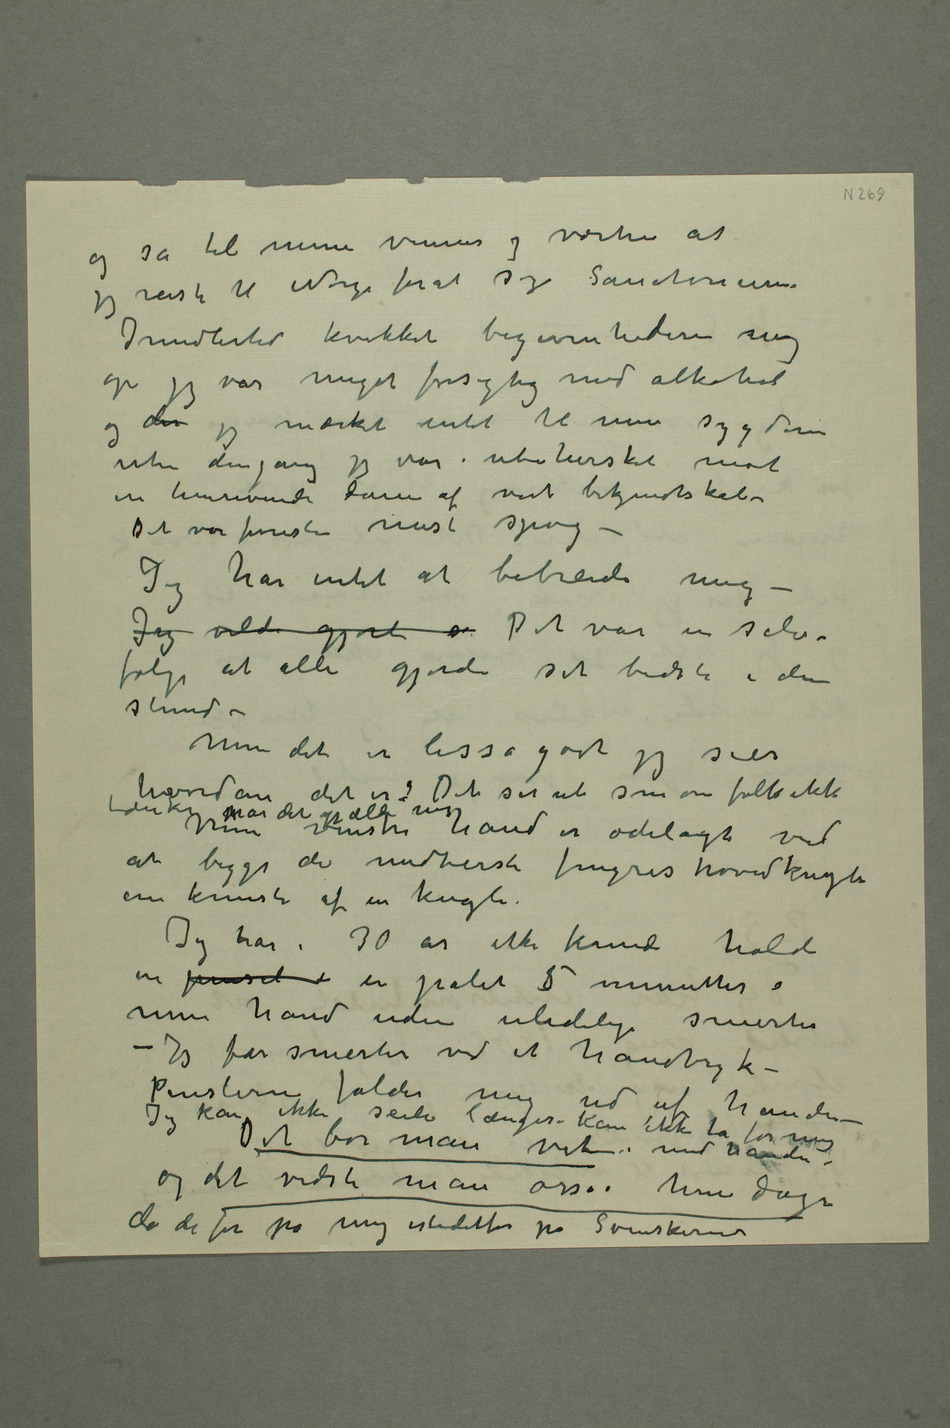 N 269
og sa til mine venner og værten at
jeg reiste til Norge forat søge Sanatorium.
Imidlertid kvikket begivenhederne mig
op jeg var meget forsigtig med alkohol
og der jeg mærket intet til min sygdom
uten dengang jeg var ubehersket mot
en henrivende dame af vort bekjendtskab –
Det var forresten mest spøg –
Jeg har intet at bebreide mig –
Jeg vilde gjort så Det var en selv-
følge at alle gjorde sit bedste i den
stund –
Men det er lissågodt jeg sier
hvordan det er: Det ser ut som om folk ikke
tænker når det gjælder mig
Min venstre hånd er ødelagt ved
at begge de midterste fingres hovedknogle
er knuste af en kugle.
Jeg har i 30 år ikke kunde holde
en pensel i en palet 5 minutter i
min hånd uden ulidelige smerter
– Jeg får smerter ved et håndtryk –
Penslerne falder mig ud af hånden –
Jeg kan ikke seile længer. Kan ikke ta for mig
med hånden.
Det bør man vite
og det vidste man også hine dage
da de før på mig istedetfor på Svenskerne